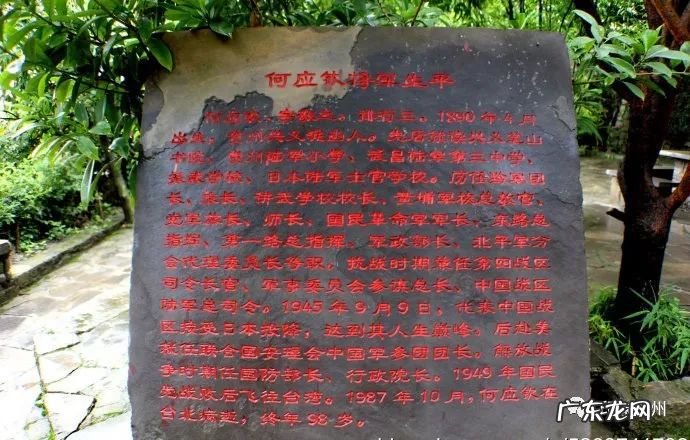 何应钦将军生平
何应钦，字敬之，排行三。1890年4月
出生，贵州兴义泥凼人。先后就读兴义笔山
书院、贵州陆军小学、武昌陆军第三中学、
振武学校、日本陆军士官学校。历任黔军团
长、旅长、讲武学校校长、黄埔军校总教官、
党军旅长、师长、国民革命军军长、东路总
指挥、第一路总指挥、军政部长、北平军分
会代理委员长等职。抗战时期兼任第四战区
司令长官、军事委员会参谋总长、中国战区
陆军总司令。1945年9月9日，代表中国战
区接受日本投降，达到其人生巅峰。后赴美
就任联合国安理会中国军委团团长。解放战
争时期任国防部长、行政院长。1949年国民
党战败后飞往台湾。1987年10月，何应钦在
台北病逝，终年98岁。
广东龙网